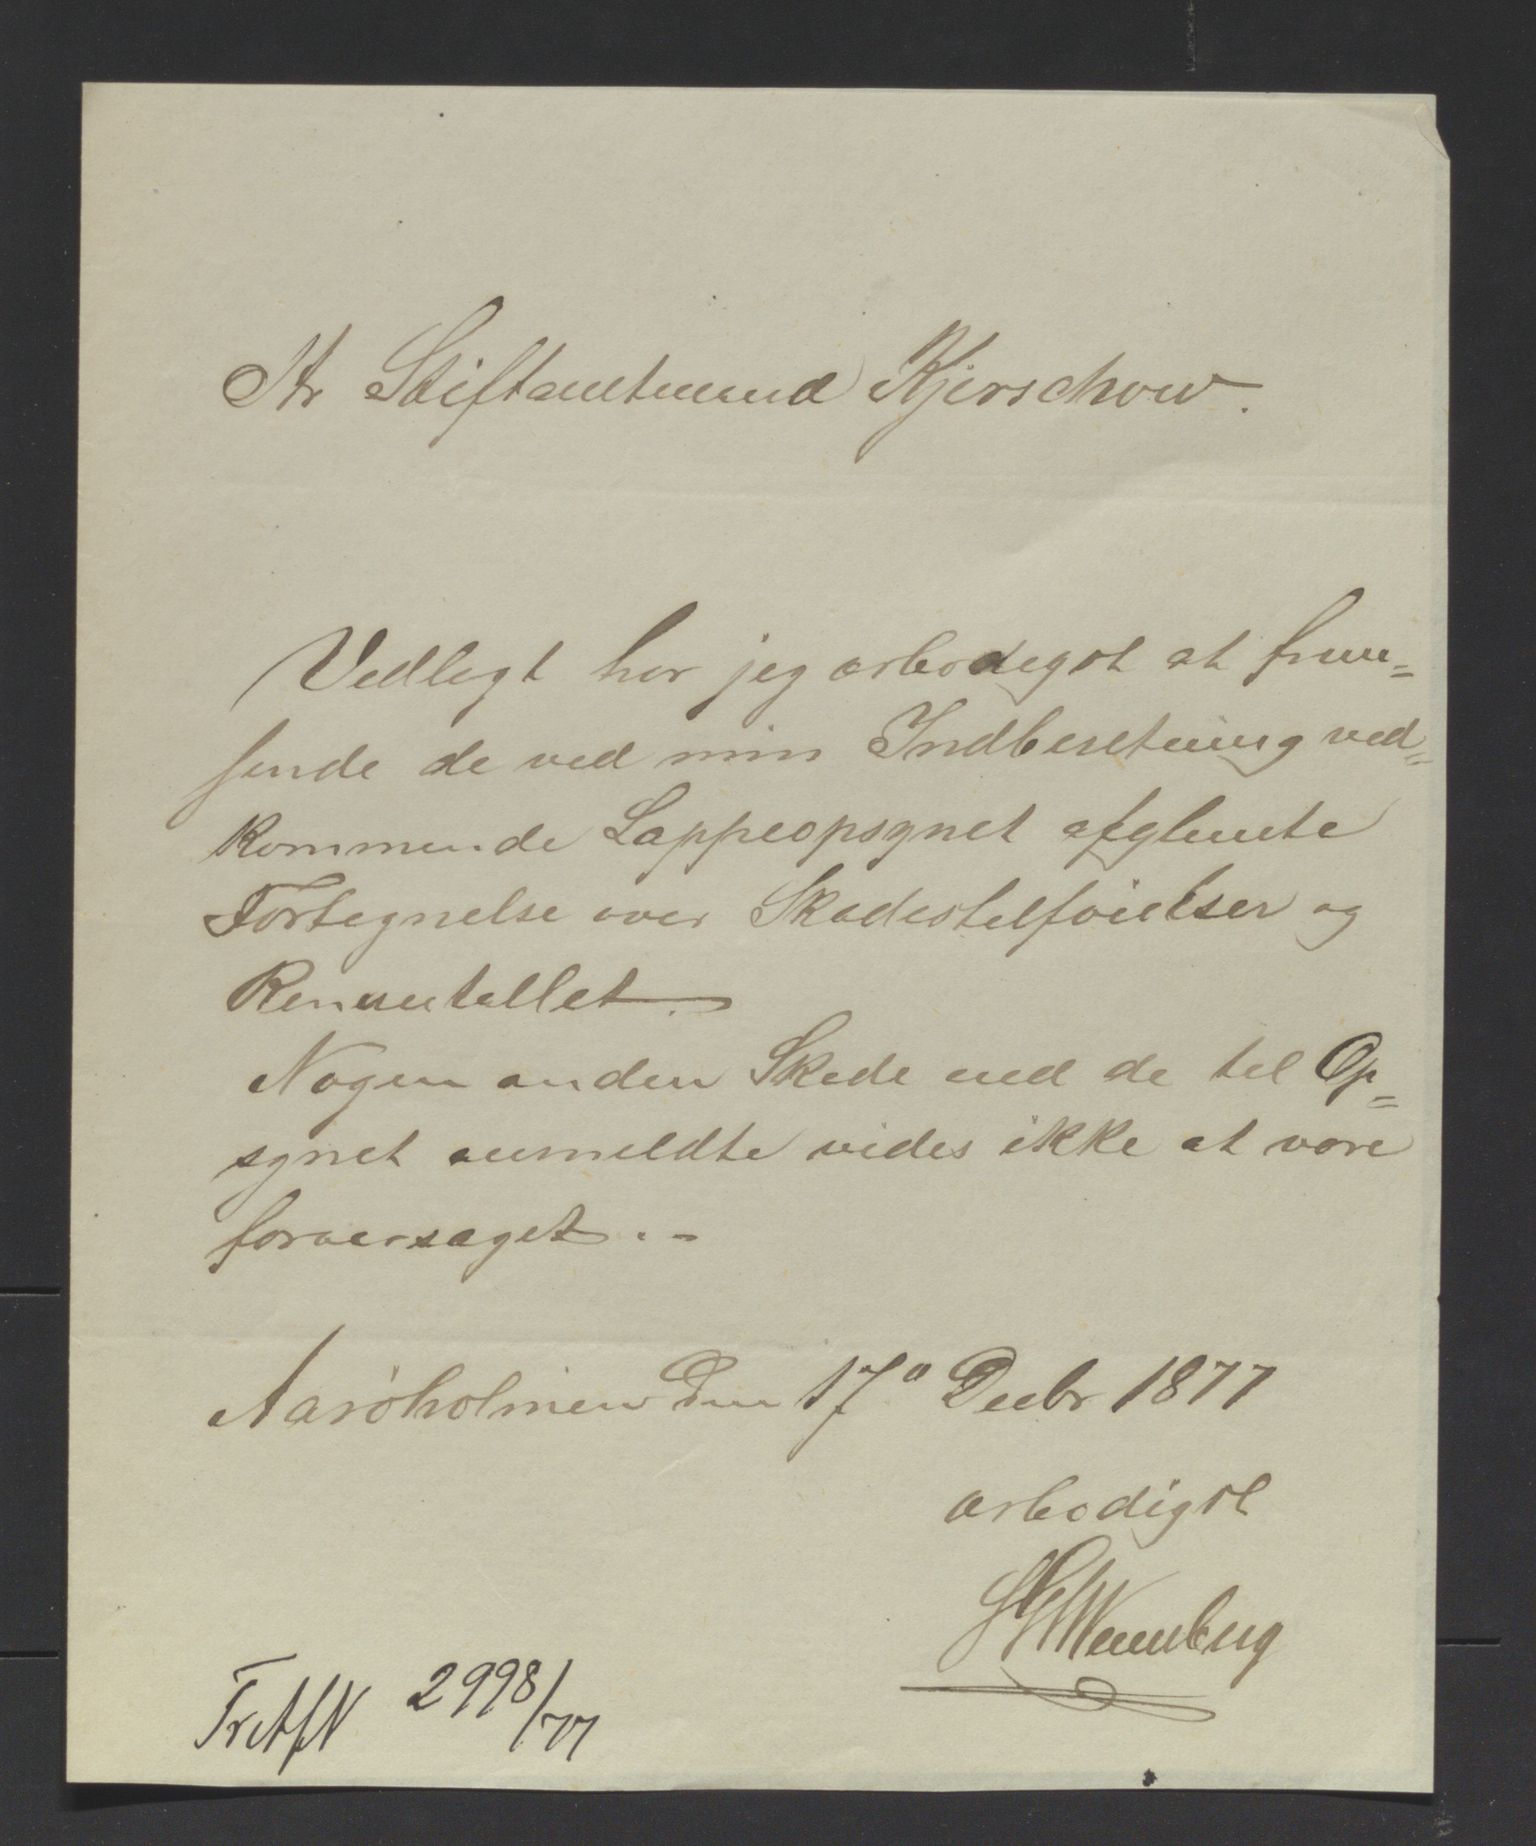 Hr Stiftamtmand Kjerschow.
Vedlagt har jeg ærbødigst at frem=
sende de ved min Indberetning ved=
kommende Lappeopsynet afglemte
Fortegnelse over Skadestilføielser og
Rensantallet.
Nogen anden Skade end de til Op=
synet anmeldte vides ikke at være
foraarsaget. -
Aarøholmen den 17de Decbr 1877
ærbødigst
Wennberg
2998/77